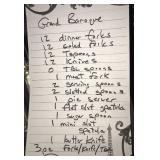 Grand Baroque
12 dinner forks
12 salad forks
12 Teaspoons
0 TBL spoons
1 meat fork
2 serving spoons
2 slotted spoons
1 pie server
1 flat slot spatula
1 sugar spoon
1 mini slot
spatula
1 butter knife
3 oz fork/knife/